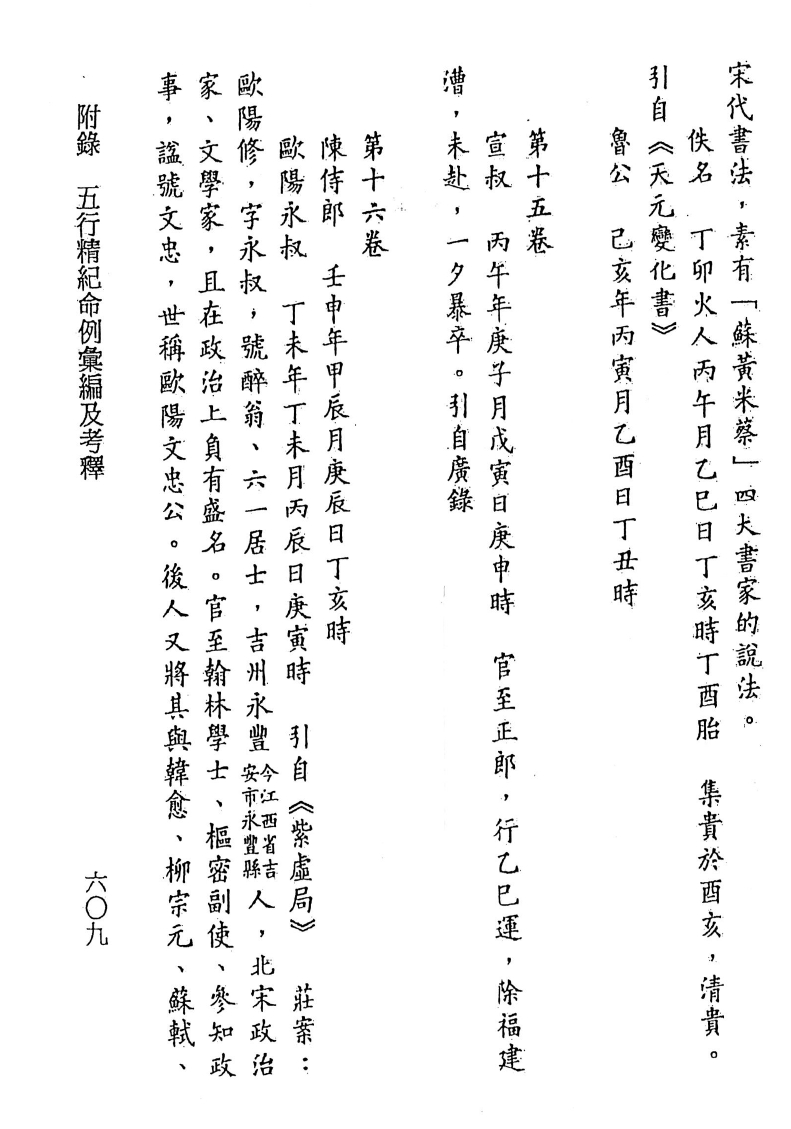 宋代書法，素有「蘇黃米蔡」四大書家的說法。
佚名　丁卯火人丙午月乙巳日丁亥時丁酉胎　集貴於酉亥，清貴。
引自《天元變化書》
魯公　己亥年丙寅月乙酉日丁丑時
第十五卷
宣叔　丙午年庚子月戊寅日庚申時　官至正郎，行乙巳運，除福建
漕，未赴，一夕暴卒。引自廣錄
第十六卷
陳侍郎　壬申年甲辰月庚辰日丁亥時
歐陽永叔　丁未年丁未月丙辰日庚寅時　引自《紫虛局》　莊案：
歐陽修，字永叔，號醉翁、六一居士，吉州永豐今江西省吉安市永豐縣人，北宋政治
家、文學家，且在政治上負有盛名。官至翰林學士、樞密副使、參知政
事，諡號文忠，世稱歐陽文忠公。後人又將其與韓愈、柳宗元、蘇軾、
附錄　五行精紀命例彙編及考釋
六〇九